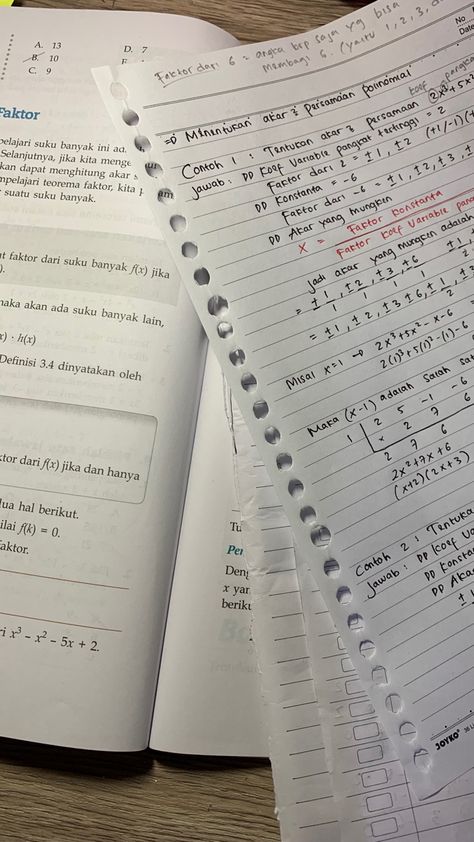 A. 13
D. 7
B. 10
C. 9
Faktor
pelajari suku banyak ini
Selanjutnya, jika kita
kan dapat menghitung akar
mpelajari teorema faktor, kita
suatu suku banyak.
t faktor dari suku banyak f(x) jika
maka akan ada suku banyak lain,
x) · h(x)
Definisi 3.4 dinyatakan oleh
ktor dari f(x) jika dan hanya
dua hal berikut.
nilai f(k) = 0.
aktor.
ri x³ – x² – 5x + 2.
Tu
Per
Deng
x yan
beriku
Faktor dari 6 = angka brp saja yg bisa
membagi 6. (yaitu 1, 2, 3,
No.
Date
=D Menentukan akar² Persamaan polinomial
Contoh 1 : Tentukan akar² Persamaan 2x³+5x²
koef pangkat
Jawab : DD Koef Variable pangkat tertinggi = 2
Faktor dari 2 = ±1, ±2 (+1/-1)
DD Konstanta = -6
Faktor dari -6 = ±1, ±2, ±3,
DD Akar yang mungkin
X = Faktor Konstanta
Faktor Koef Variable
Jadi akar yang mungkin adalah
= ±1, ±2, ±3, ±6, ±1
1 1 1 1 2
= ±1, ±2, ±3, ±6, ±1,
2
Misal x=1 → 2x³+5x²-x-6
2(1)³+5(1)²-(1)-6
Maka (x-1) adalah salah
1 2 5 -1 -6
x 2 7 6
2 7 6
2x²+7x+6
(x+2)(2x+3)
Contoh 2 : Tentukan
Jawab : DD Koef
DD Konstan
DD Akar
±1
JOYKO 36 L